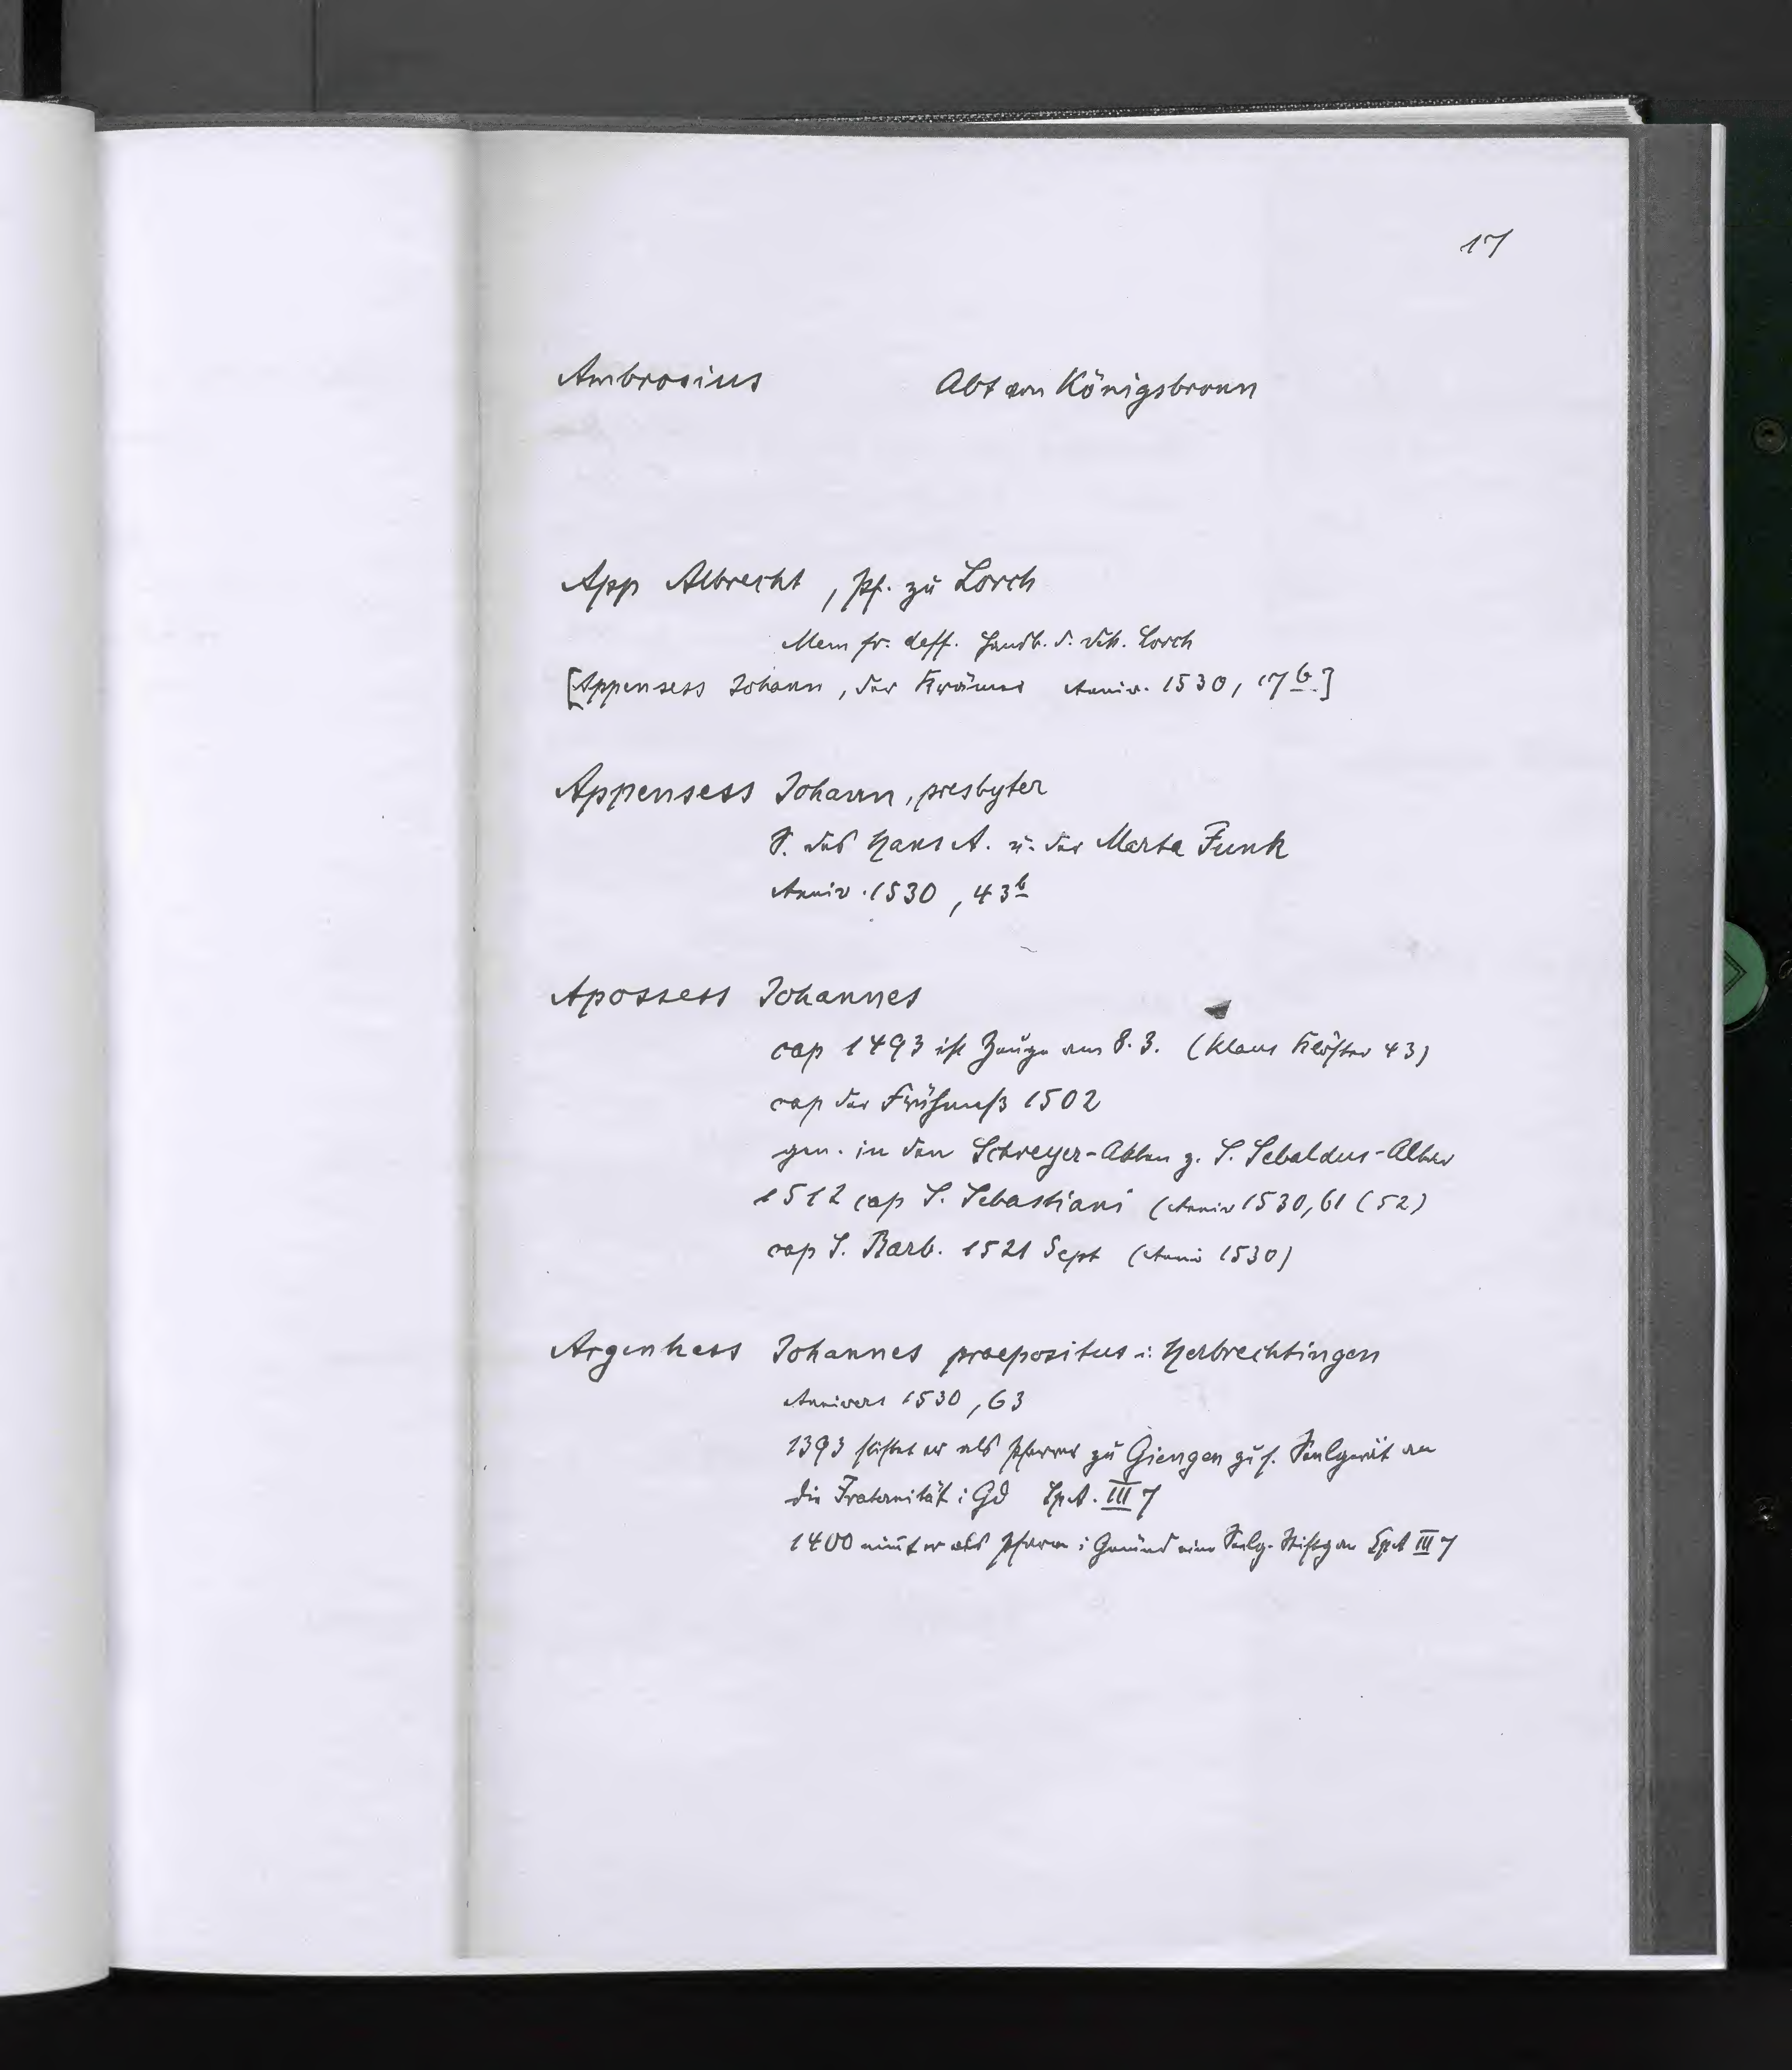 17
Ambrosius Abt von Königsbronn
App Albrecht, Pf. zu Lorch
Mem fr. deff. Landk. d. Dek. Lorch
[Appensess Johann, der Krämer Anniv. 1530, 17b]
Appensess Johann, presbyter
S. des Hans A. u. der Marta Funk
Anniv. 1530, 43b
Apossess Johannes
cap 1493 ist Zeuge am 8.3. (Klaus Klöster 43)
cap der Frühmeß 1502
gen. in den Schreyer-Akten z. S. Sebaldus-Altar
1512 cap S. Sebastiani (Anniv 1530, 61 (52)
cap S. Barb. 1521 Sept (Anni 1530)
Argenhass Johannes praepositus i. Herbrechtingen
Annivers 1530, 63
1393 stiftet er als Pfarrer zu Giengen zu s. Seelgerät an
die Fraternität i Gd SpA. III 7
1400 nim̄t er als Pfarrer i Gmünd eine Seelg. Stiftg an SpA III 7